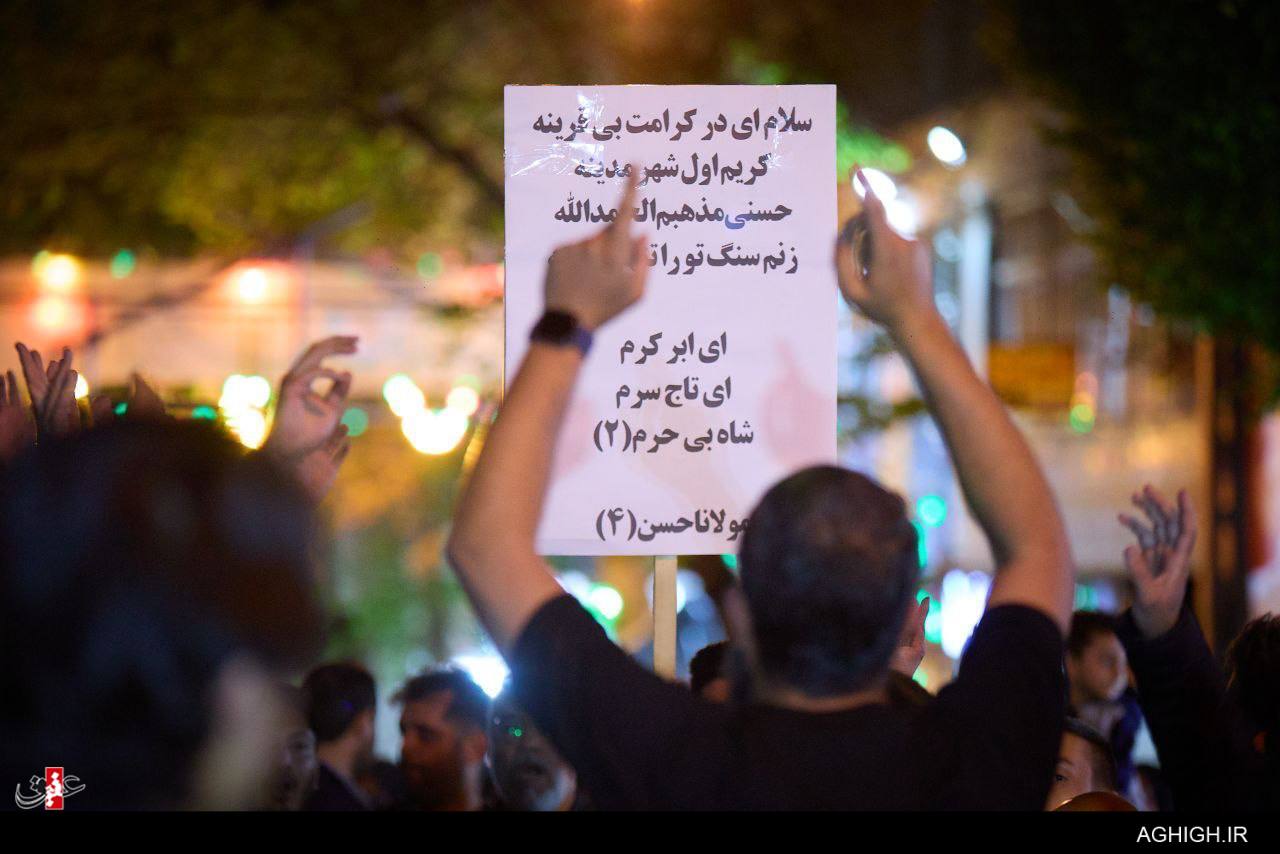 سلام ای در کرامت بی قرینه
کریم اول شهر مدینه
حسنی مذهبم الحمدالله
زنم سنگ تو را
ای ابر کرم
ای تاج سرم
شاه بی حرم(۲)
مولانا حسن(۴)
عقیق
AGHIGH.IR